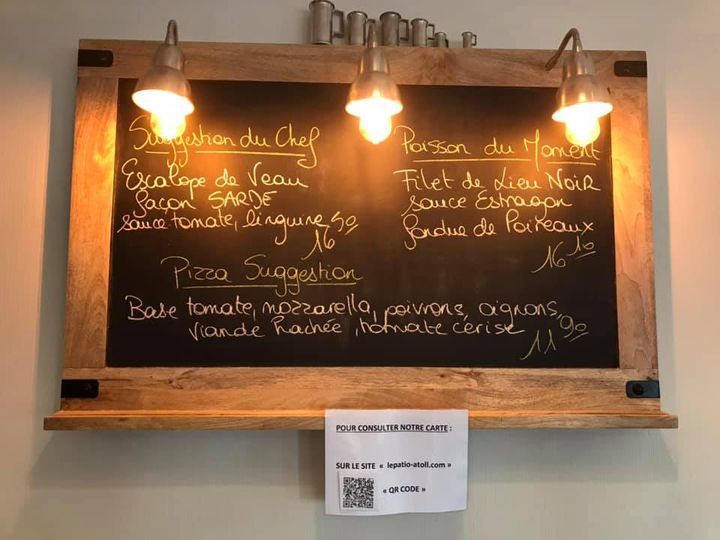 Suggestion du Chef
Escalope de Veau
façon SARDE
sauce tomate, linguine
16 90
Poisson du Moment
Filet de Lieu NOIR
sauce Estragon
fondue de Poireaux
16 10
Pizza Suggestion
Base tomate, mozzarella, poivrons, oignons,
viande hachée, tomate cerise
11 90
POUR CONSULTER NOTRE CARTE :
SUR LE SITE « lepatio-atoll.com »
« QR CODE »